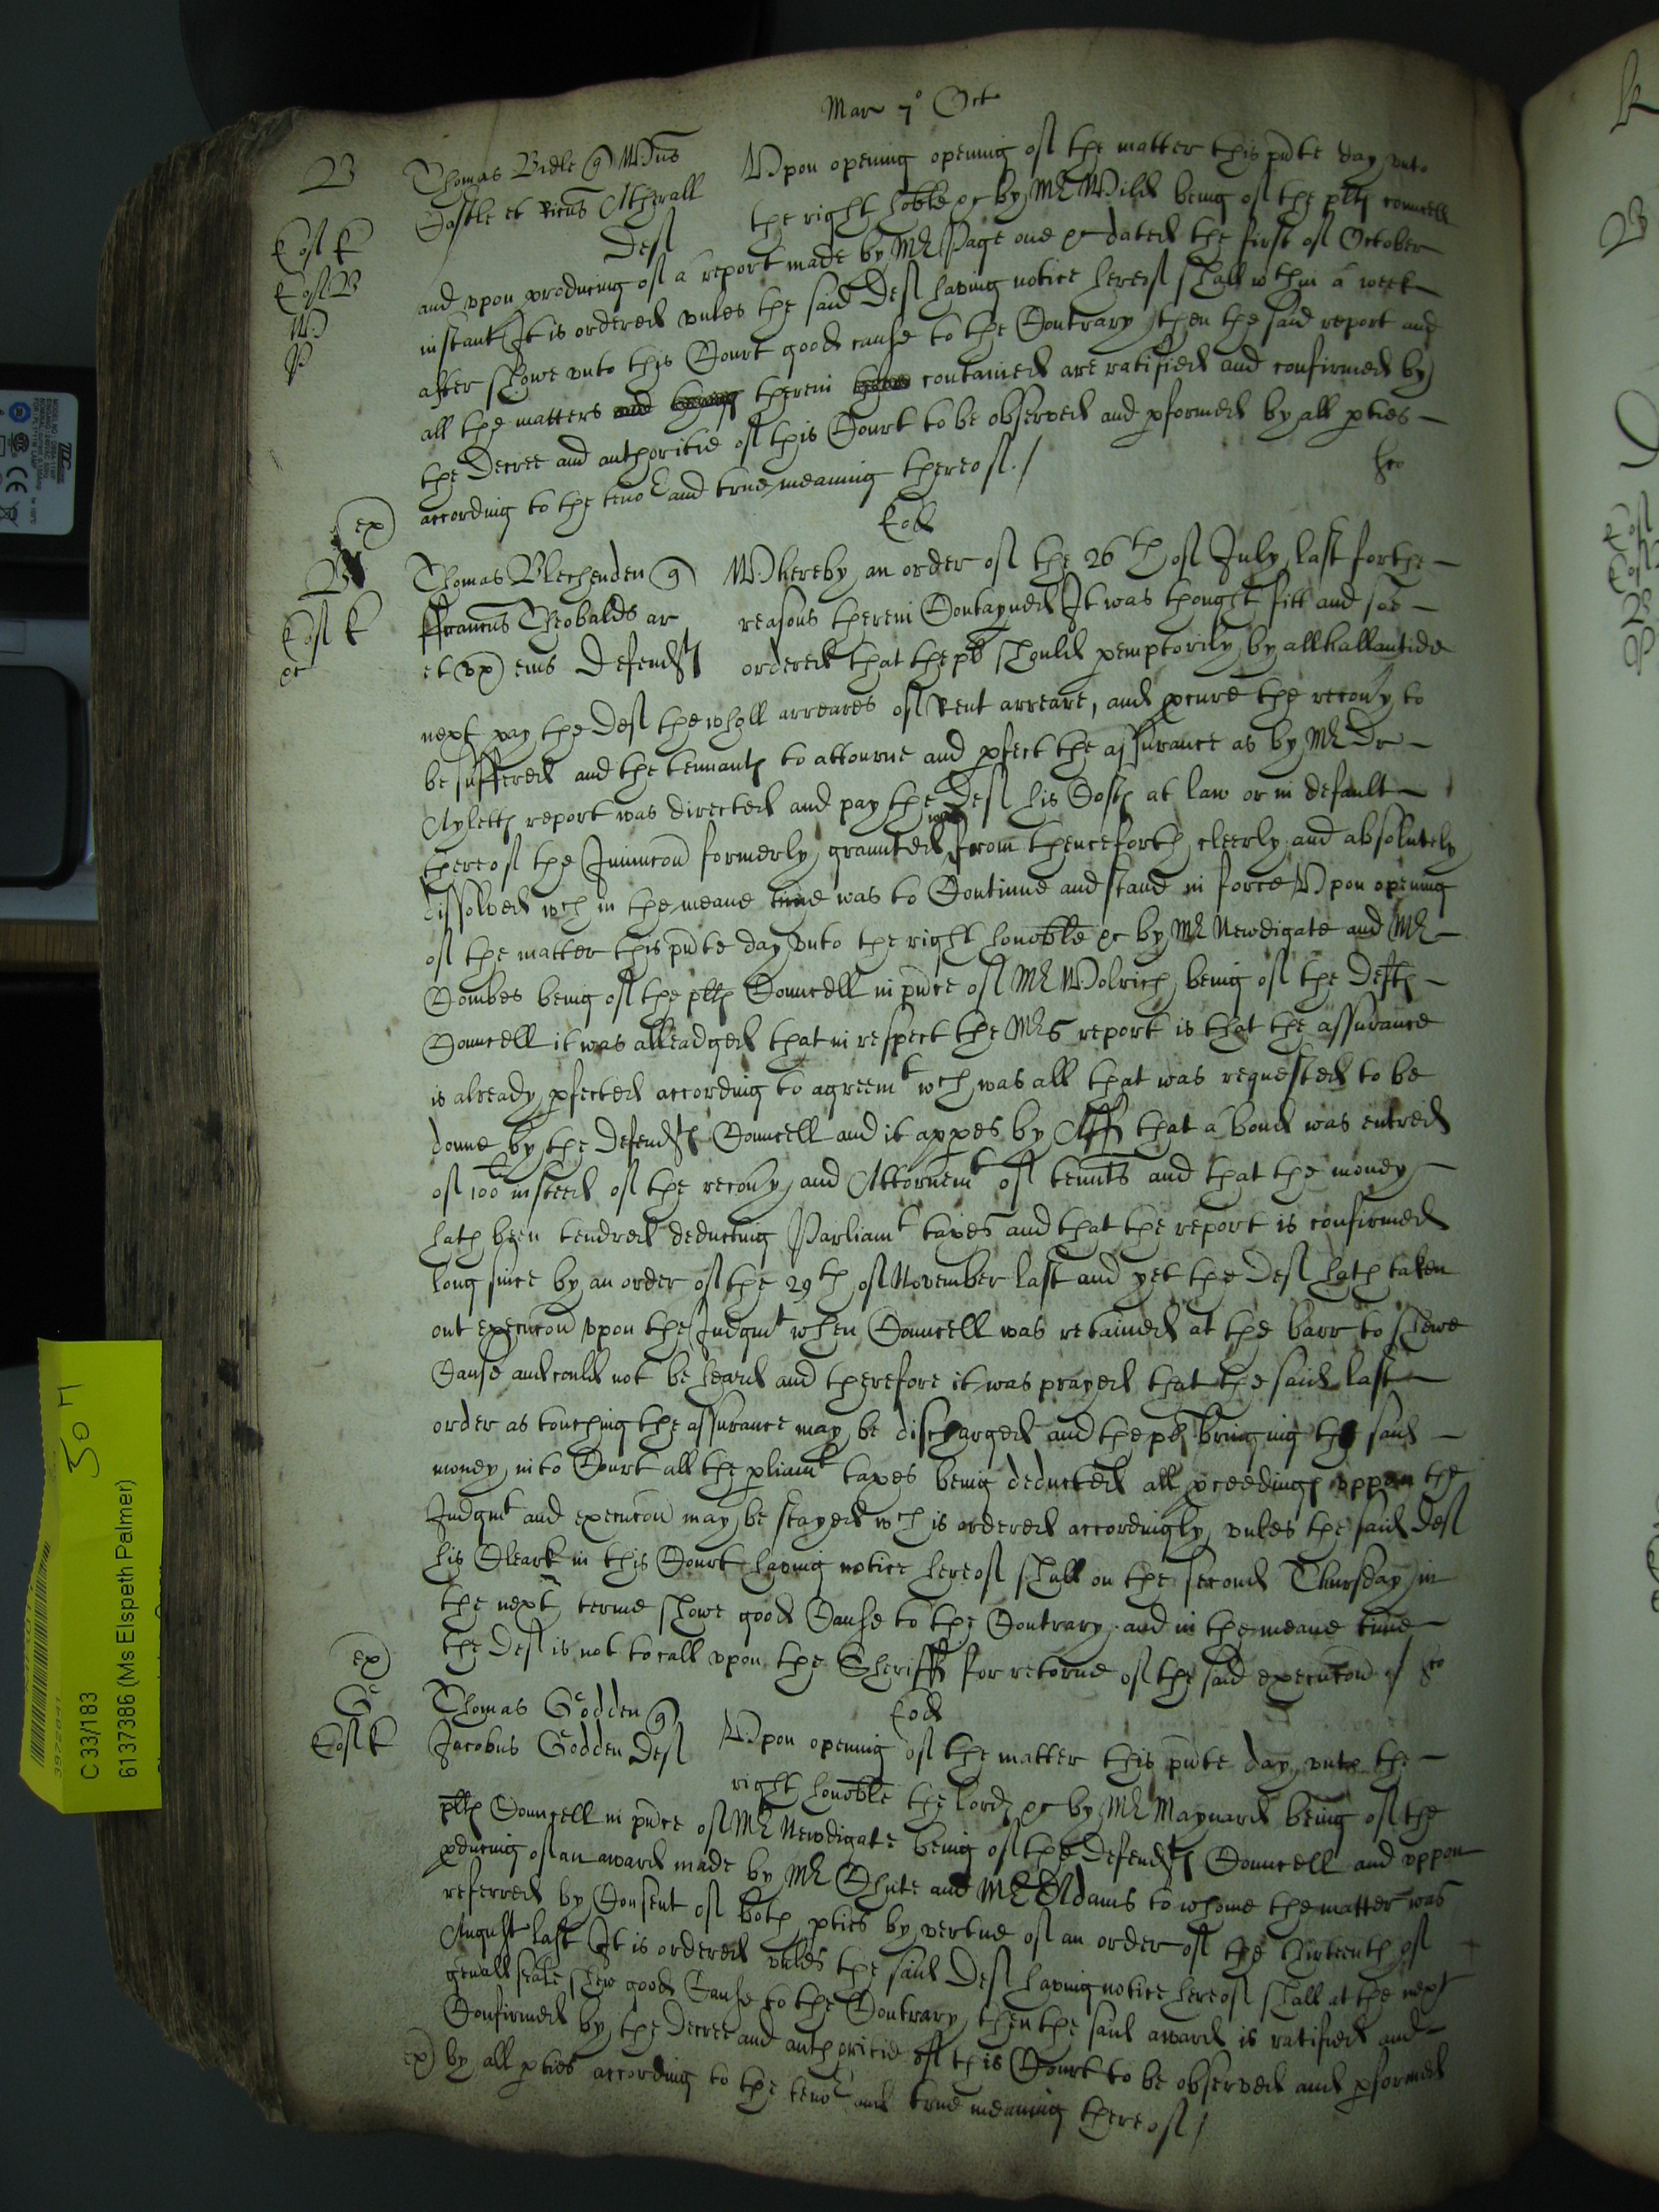 Mar 7° Oct
B
Thomas Bidle q Willms
Castle et Ricus Atherall
Def
Upon opening opening of the matter this pnte day unto
the right hoble &c by Mr Wild being of the plts councell
Cosf k
Cosf B
W
P
and upon producing of a report made by Mr Page one &c dated the first of October
instant It is ordered unles the said Def having notice hereof shall wthin a week
after showe unto this Court good cause to the Contrary then the said report and
all the matters therein contained are ratified and confirmed by
the Decree and authoritie of this Court to be observed and pformed by all pties
according to the tenor and true meaning thereof /
ex
Eod
B
Thomas Blechenden q
ffrancus Theobalds ar
et ux eius Defendts
Cosf k
&c
Whereby an order of the 26th of July last for the
reasons therein Contayned It was thought fitt and soe
ordered that the plt should pemptorily by allhallantide
next pay the Def the wholl arreares of Rent arreare, and pcure the recovy to
be suffered and the tennants to attourne and pfect the assurance as by Mr Dr
Ayletts report was directed and pay the Def his Costs at law or in default
thereof the Iniuncon formerly graunted was from thenceforth cleerly and absolutely
dissolved wch in the meane time was to Continue and stand in force Upon opening
of the matter this pnte day unto the right honoble &c by Mr Newdigate and Mr
Combes being of the plts Councell in pnce of Mr Wolrich being of the Defts
Councell it was alleadged that in respect the Mrs report is that the assurance
is already pfected according to agreemt wch was all that was requested to be
donne by the Defendts Councell and it appes by Aff that a bond was entred
of 100l insteed of the recovy and Attornemt of tennts and that the money
hath been tendred deducting Parliamt taxes and that the report is confirmed
long since by an order of the 29th of November last and yet the Def hath taken
out execucon upon the Judgmt when Councell was retained at the barr to shewe
Cause and could not be heard and therefore it was prayed that the said last
order as touching the assurance may be discharged and the plt bringing the said
money into Court all the pliamt taxes being deducted all pceedings uppon the
Judgmt and execucon may be stayed wch is ordered accordingly unles the said Def
his Clerk in this Court having notice hereof shall on the second Thursday in
the next terme showe good Cause to the Contrary and in the meane time
the Def is not to call upon the Sheriff for retorne of the said execucon /
ex
Ge
Cosf k
Thomas Godden q
Jacobus Godden Def
Eod
Upon opening of the matter this pnte day unto the
right honoble the lords &c by Mr Maynard being of the
plts Councell in pnce of Mr Newdigate being of the Defendts Councell and uppon
pducing of an award made by Mr Chute and Mr Adams to whome the matter was
referred by Consent of both pties by vertue of an order of the thirteenth of
August last It is ordered unles the said Def having notice hereof shall at the next
genall seale shew good Cause to the Contrary then the said award is ratified and
Confirmed by the Decree and authoritie of this Court to be observed and pformed
ex by all pties according to the tenor and true meaning thereof /
C 33/183
6137386 (Ms Elspeth Palmer)